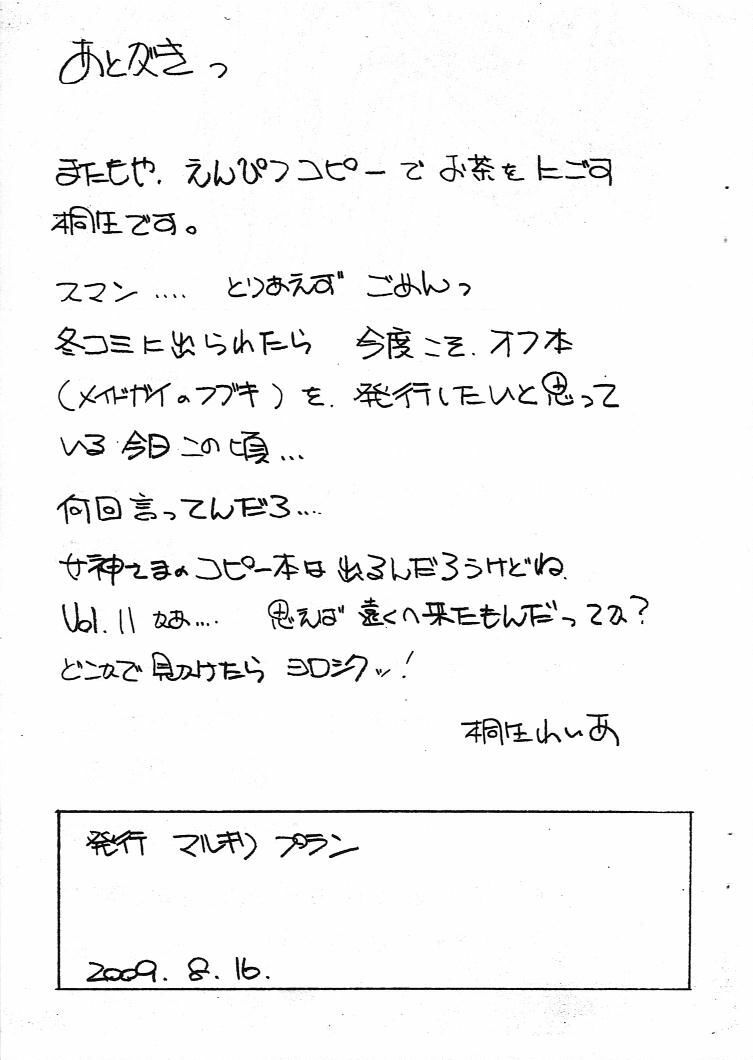 あとがきっ
またもや、えんぴつコピーで お茶を にごす
桐生です。
スマン.... とりあえず ごめんっ
冬コミに出られたら 今度こそ、オフ本
(メイドガイのフブキ)を、発行したいと思って
いる今日この頃...
何回言ってんだろ....
女神さまのコピー本は 出るんだろうけどね、
Vol.11 なぁ.... 思えば 遠くへ来たもんだってか?
どこかで見かけたら ヨロシクッ!
桐生れいあ
発行 マルキリ プラン
2009. 8. 16.